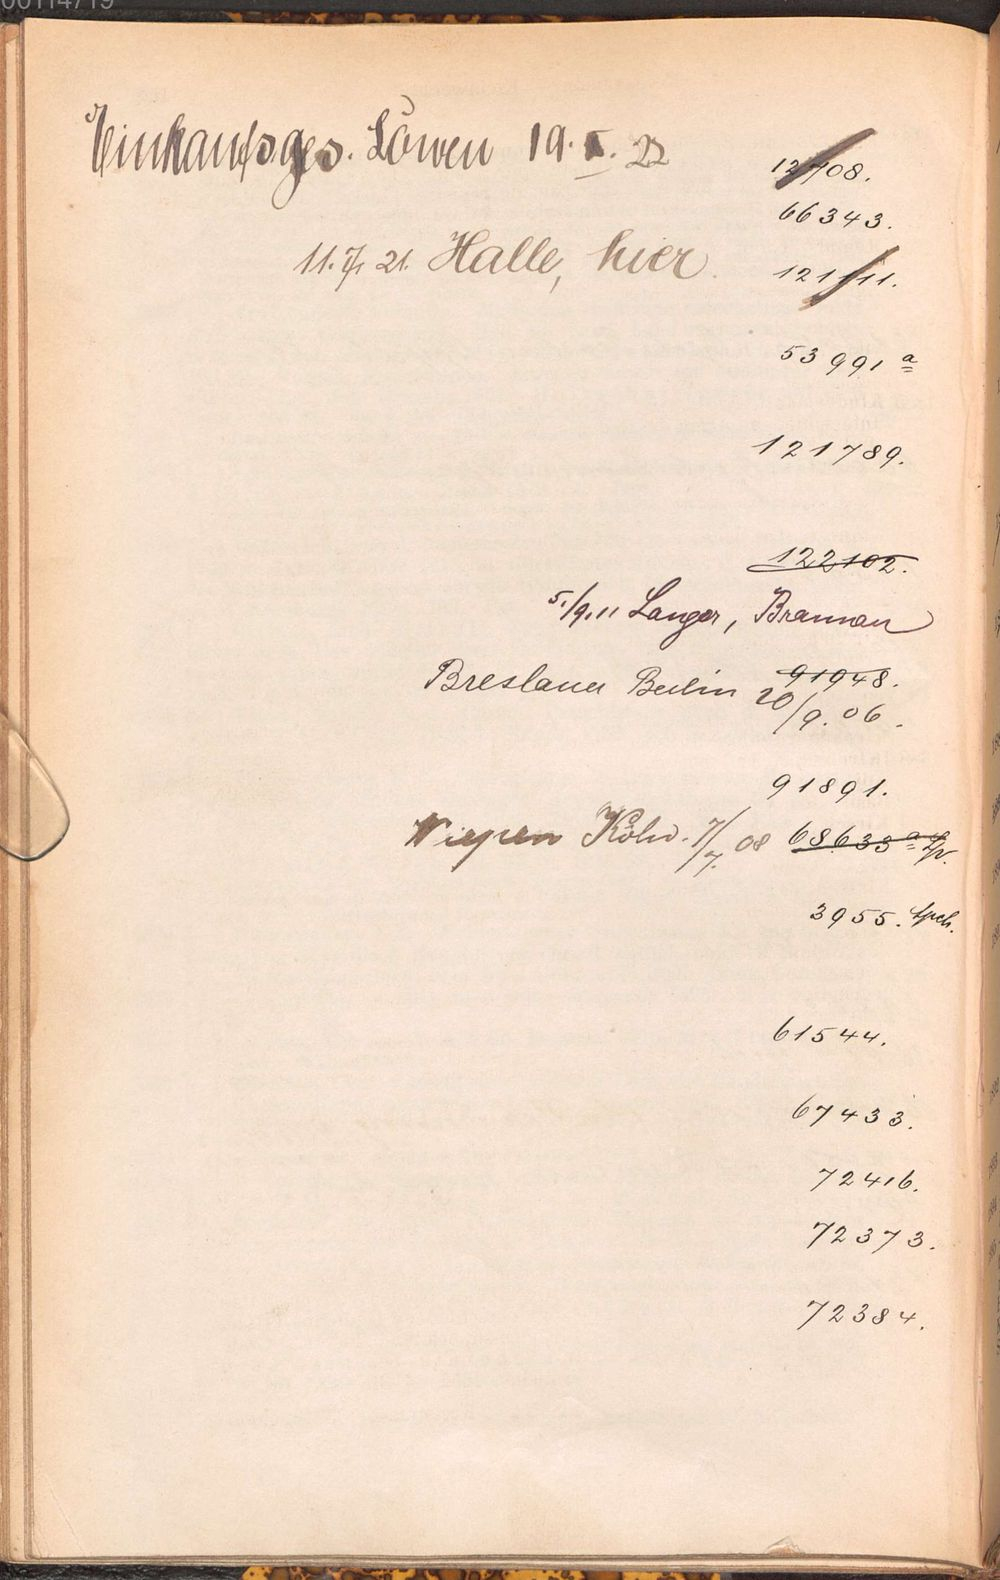 00114719
Einkaufsges. Löwen 19. I. 22
12708.
66343.
11.7. 21. Halle, hier.
121111.
53991 a
121789.
122102.
5./9.11 Langer, Braunau
91948.
Breslauer Berlin 20/9. 06.
91891.
Köln. 7/7. 08 68633 a
3955. Spch.
61544.
67433.
72416.
72373.
72384.